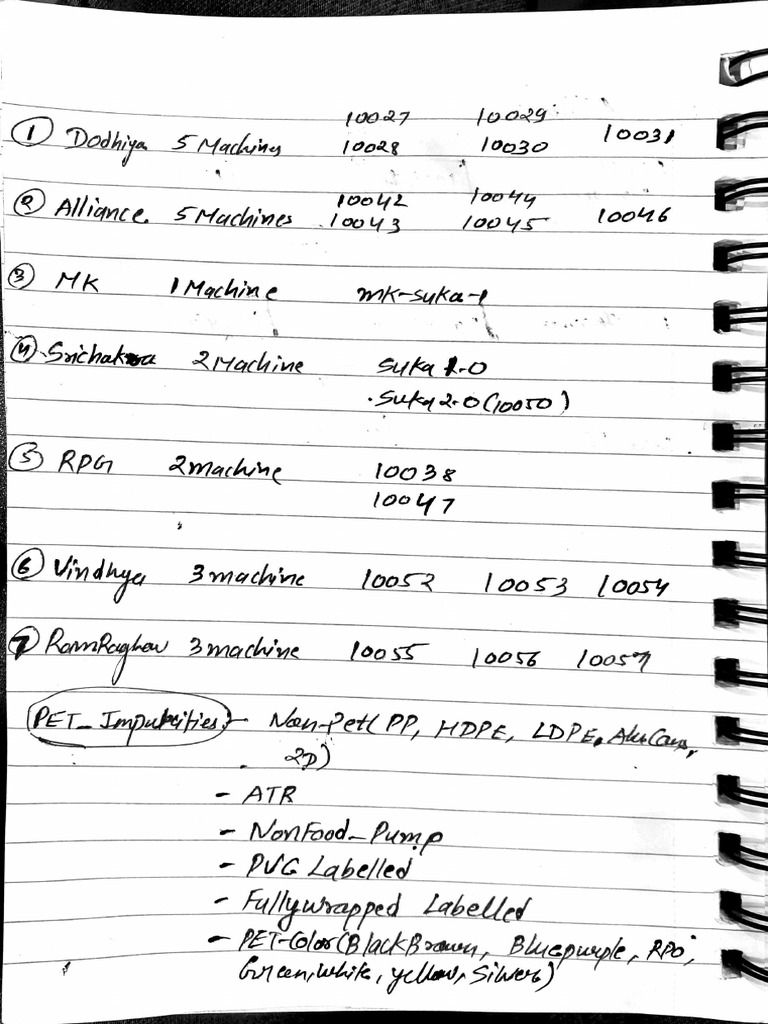 10027 10029
① Dodhiya 5 Machines 10028 10030 10031
10042 10044
② Alliance 5 Machines 10043 10045 10046
③ MK 1 Machine mk-suka-1
④ Srichakra 2 Machine Suka 1.0
Suka 2.0 (10050)
⑤ RPG 2 machine 10038
10047
⑥ Vindhya 3 machine 10052 10053 10054
⑦ RamRaghav 3 machine 10055 10056 10057
PET_Impurities :- Non-Pet (PP, HDPE, LDPE, AluCans,
2D)
- ATR
- NonFood_Pump
- PVG Labelled
- Fullywrapped Labelled
- PET-Color (BlackBrown, Bluepurple, RPO,
Green, White, yellow, Silver)